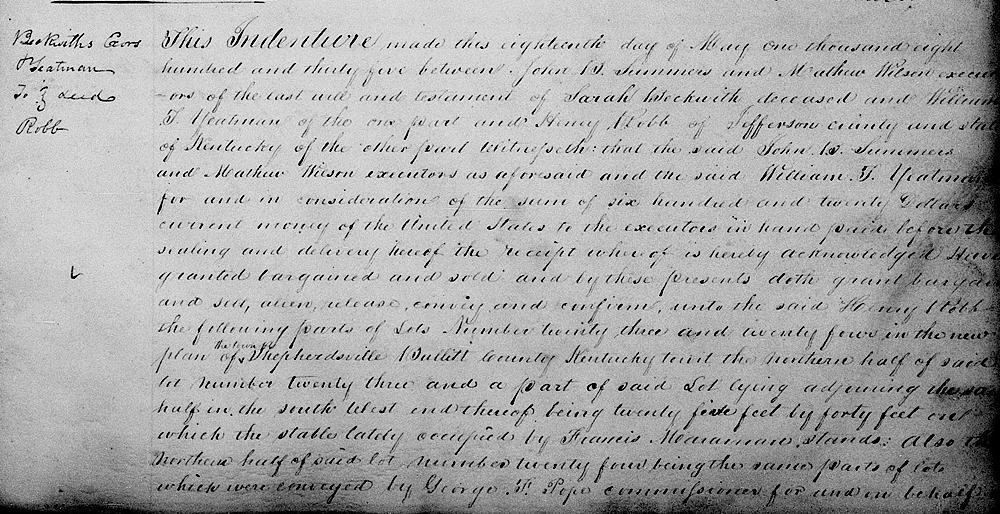 Beckwiths Exors
& Yeatman
To } deed
Robb
This Indenture made this eighteenth day of May one thousand eight
hundred and thirty five between John W. Summers and Mathew Wilson execut
-ors of the last will and testament of Sarah Beckwith deceased and William
T. Yeatman of the one part and Henry Robb of Jefferson county and state
of Kentucky of the other part Witnesseth: that the said John W. Summers
and Mathew Wilson executors as aforesaid and the said William T. Yeatman
for and in consideration of the sum of six hundred and twenty Dollars
current money of the United States to the executors in hand paid before the
sealing and delivery hereof the receipt whereof is hereby acknowledged Have
granted bargained and sold and by these presents doth grant bargain
and sell, alien, release, convey and confirm, unto the said Henry Robb
the following parts of Lots Number twenty three and twenty four in the new
plan of the town of Shepherdsville Bullitt County Kentucky towit the northern half of said
lot number twenty three and a part of said Lot lying adjoining the said
half in the south West end thereof being twenty five feet by forty feet on
which the stable lately occupied by Francis Maraman stands: also the
Northern half of said lot number twenty four being the same parts of lots
which were conveyed by George F. Pope commissioner for and in behalf